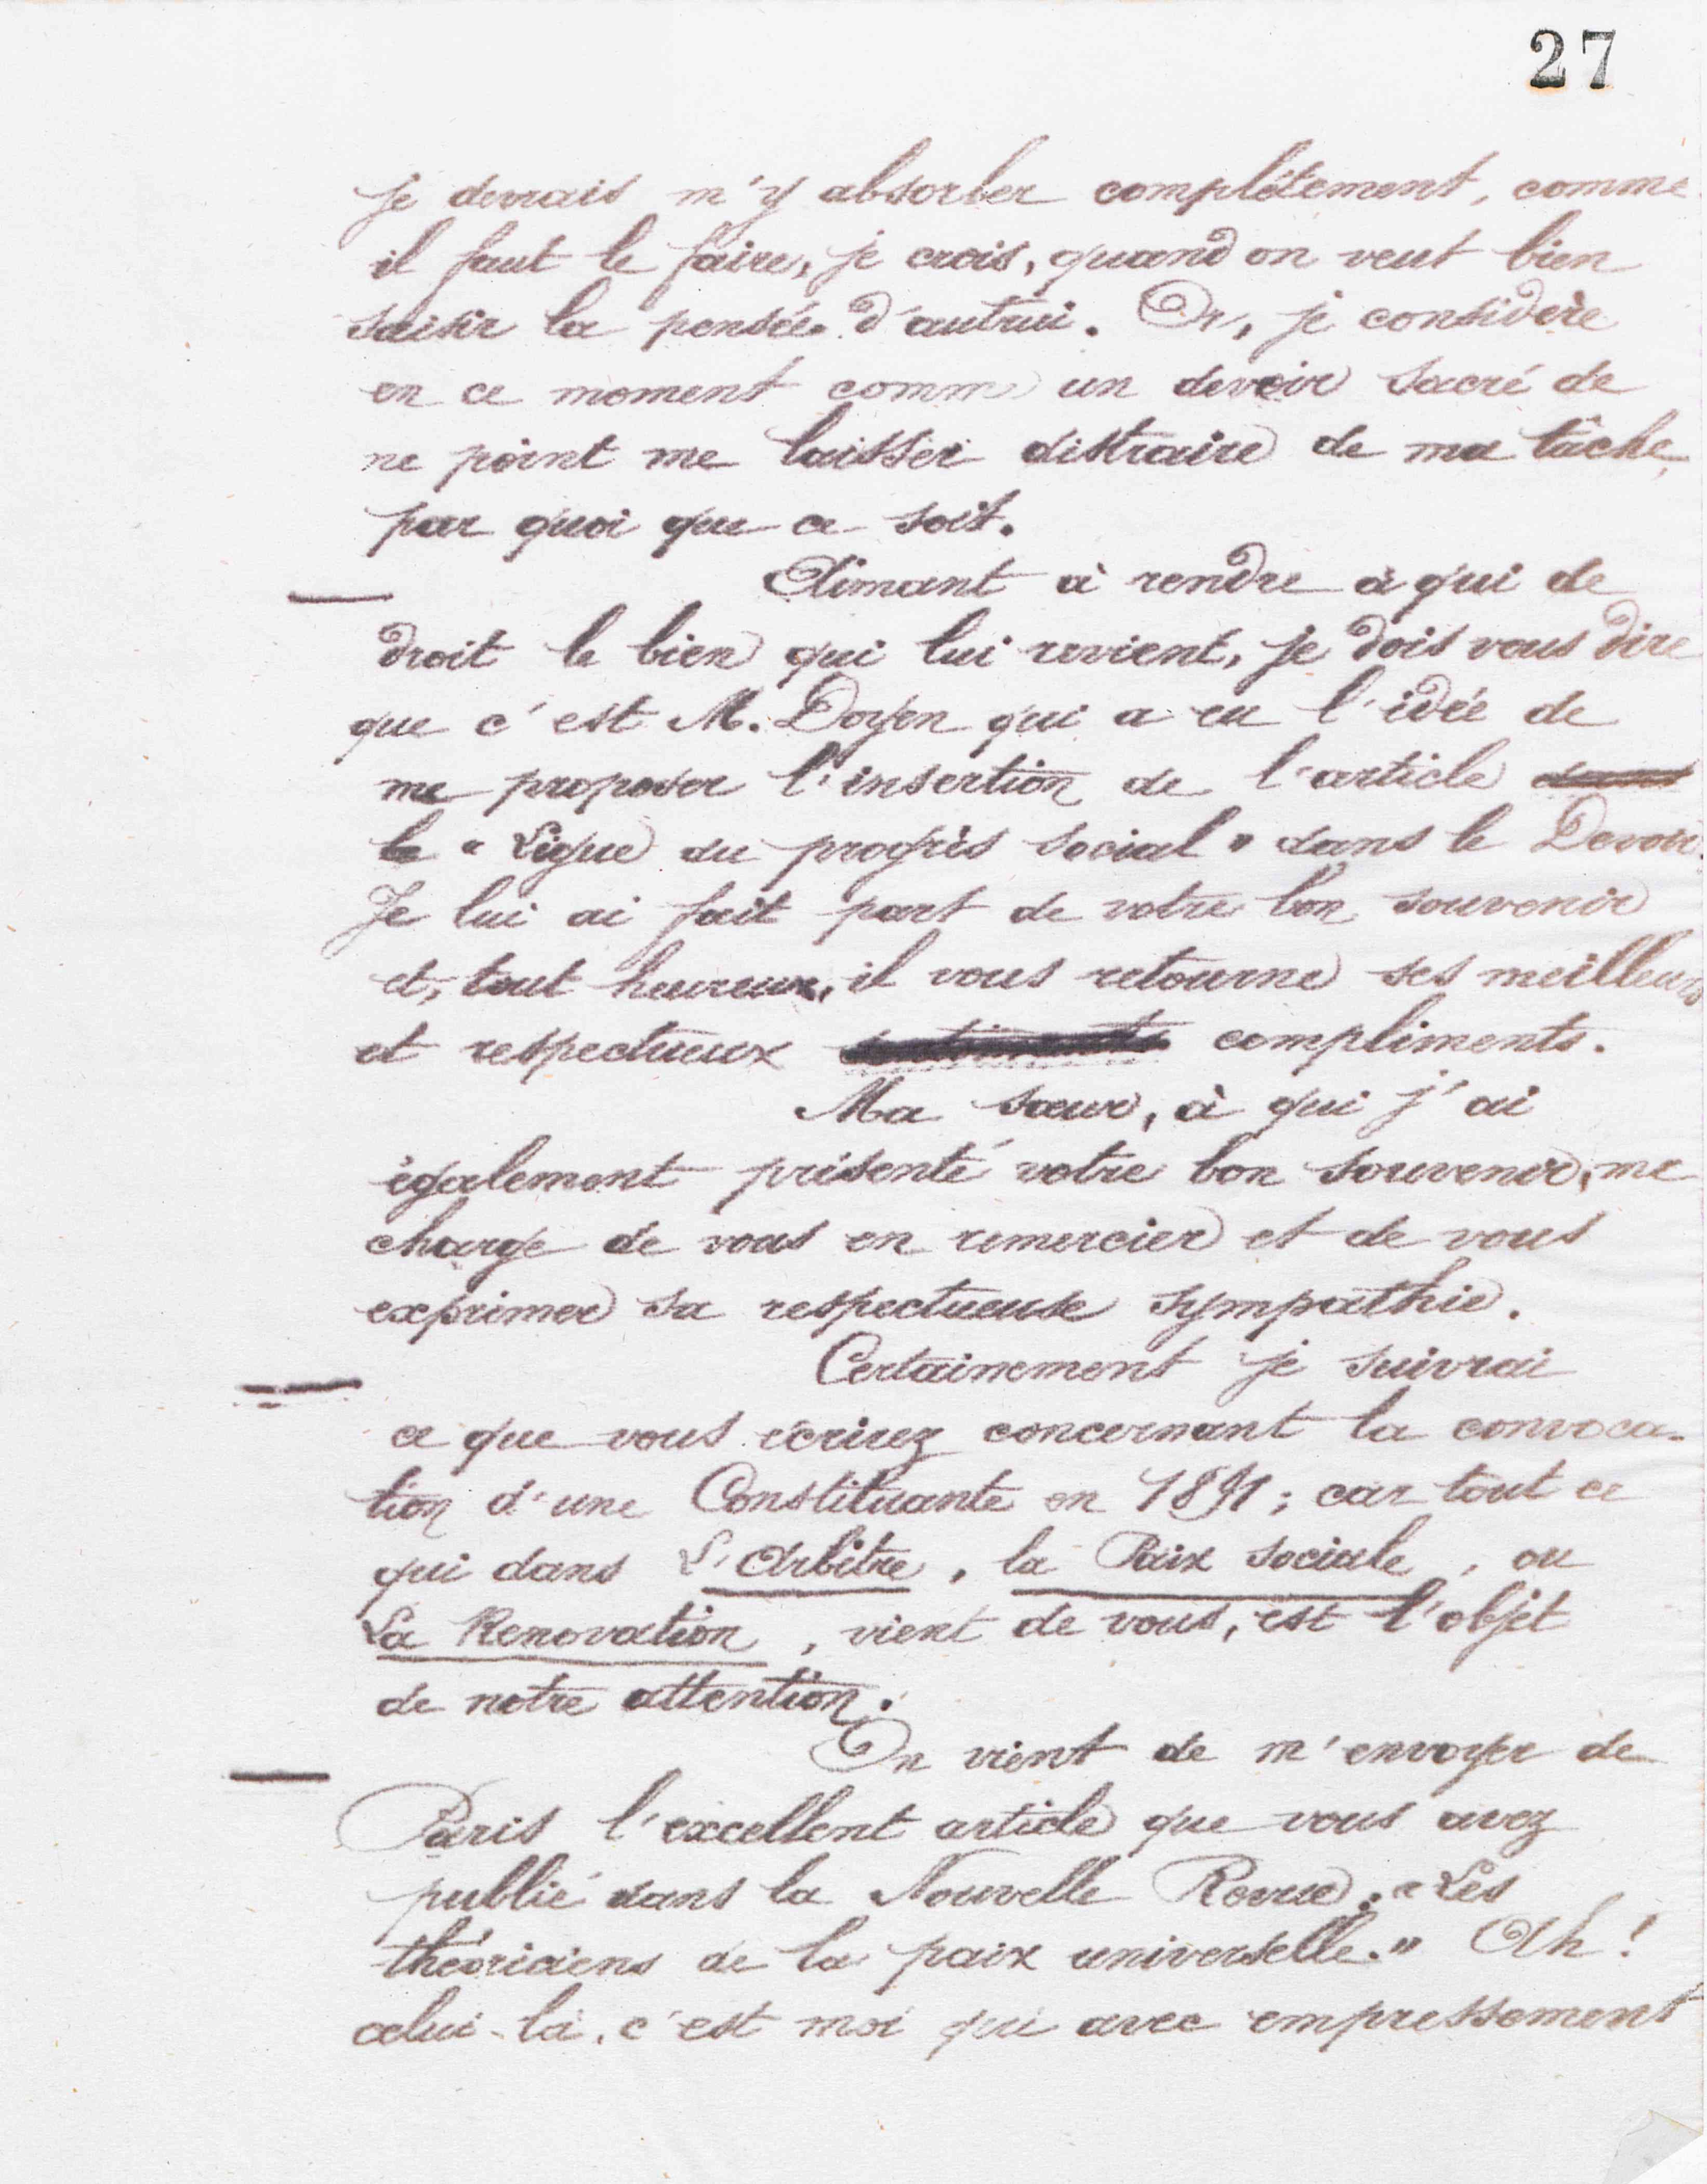 27
je devrais m'y absorber complétement, comme
il faut le faire, je crois, quand on veut bien
saisir la pensée d'autrui. Or, je considère
en ce moment comme un devoir sacré de
ne point me laisser distraire de ma tâche,
par quoi que ce soit.
Aimant à rendre à qui de
droit le bien qui lui revient, je dois vous dire
que c'est M. Doyen qui a eu l'idée de
me proposer l'insertion de l'article dans
le « Ligue du progrès social » dans le Devoir.
Je lui ai fait part de votre bon souvenir
et, tout heureux, il vous retourne ses meilleurs
et respectueux compliments.
Ma sœur, à qui j'ai
également présenté votre bon souvenir, me
charge de vous en remercier et de vous
exprimer sa respectueuse sympathie.
Certainement je suivrai
ce que vous écrirez concernant la convoca-
tion d'une Constituante en 1891 ; car tout ce
qui dans L'Arbitre, la Paix sociale, ou
La Renovation, vient de vous, est l'objet
de notre attention.
On vient de m'envoyer de
Paris l'excellent article que vous avez
publié dans la Nouvelle Revue : « Les
théoriciens de la paix universelle. » Ah !
celui-là, c'est moi qui avec empressement